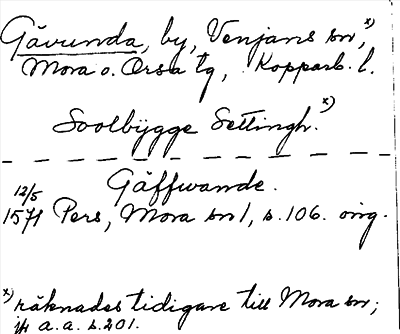 Gävunda, by, Venjans sn,x)
Mora o. Orsa tg, Kopparb. l.
Soolbÿgge Settingh.x)
Gäffwande.
12/5
1571 Pers, Mora sn 1, s. 106. orig.
x) räknades tidigare till Mora sn;
jfr a.a. s. 201.